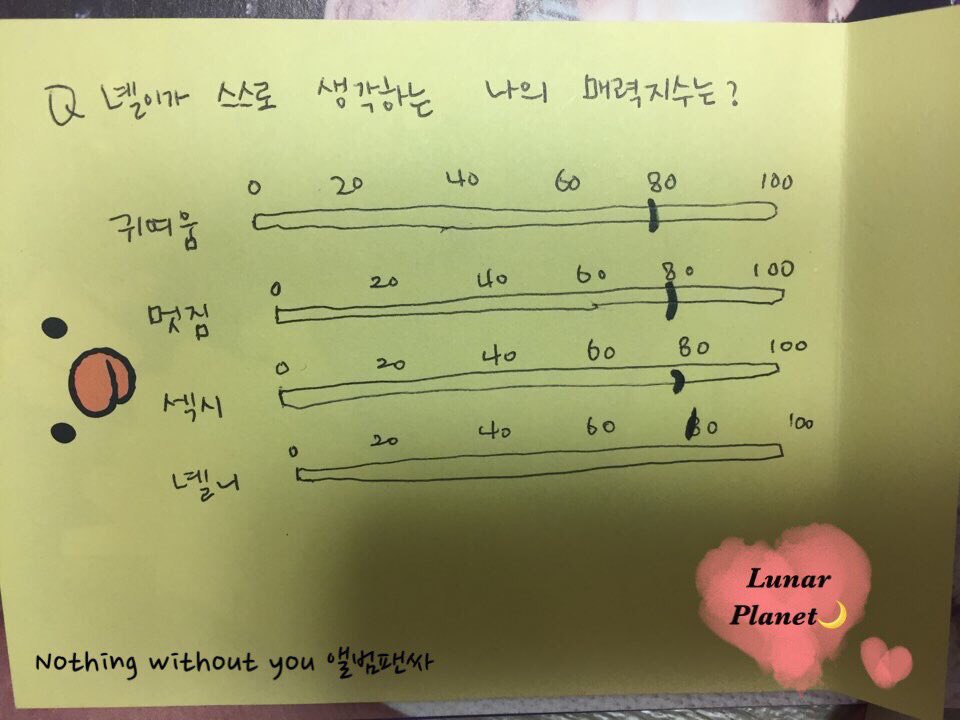 Q 녤이가 스스로 생각하는 나의 매력지수는?
0 20 40 60 80 100
귀여움
0 20 40 60 80 100
멋짐
0 20 40 60 80 100
섹시
0 20 40 60 80 100
녤니
Lunar
Planet🌙
Nothing without you 앨범팬싸